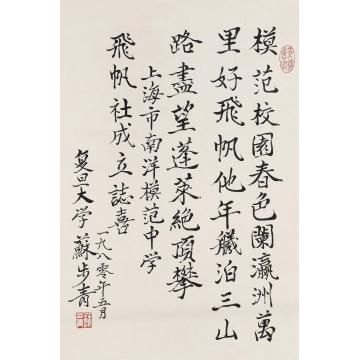 模范校園春色闌瀛洲萬
里好飛帆他年艤泊三山
路盡望蓬萊絕頂攀
上海市南洋模范中学
飛帆社成立誌喜
復旦大学蘇步青
一九八零年五月